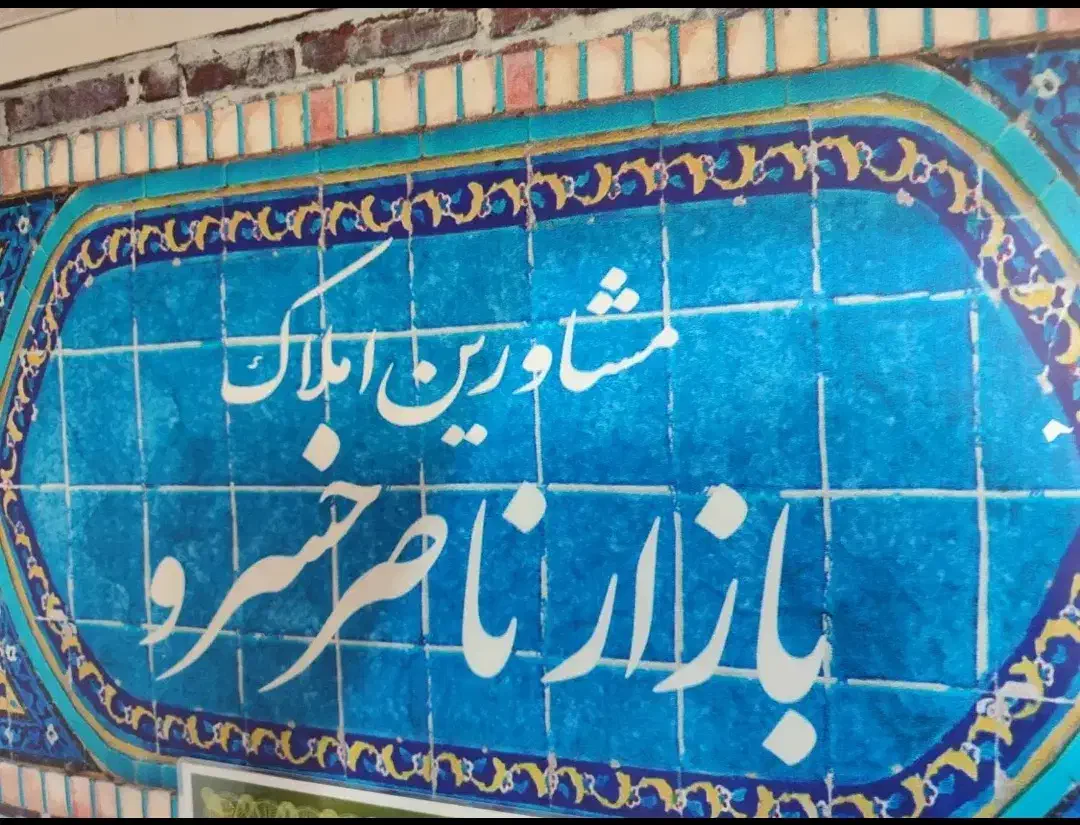 مشاورین املاک
بازار ناصرخسرو